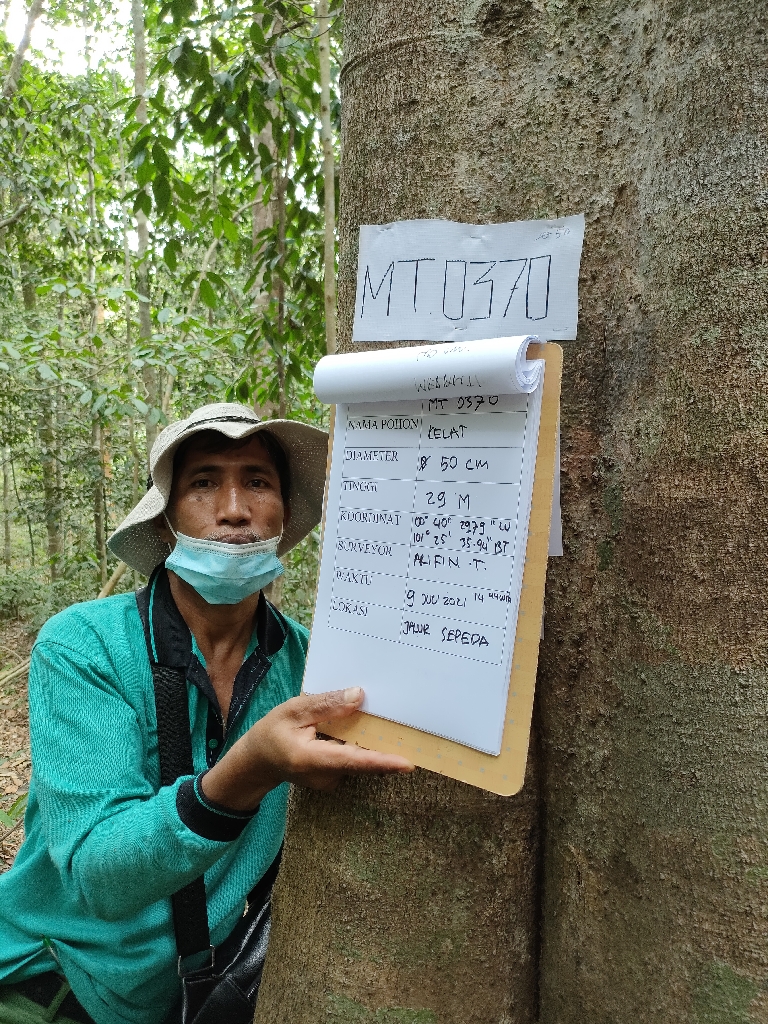 MT.0370
MT 0370
NAMA POHON KELAT
DIAMETER Ø 50 cm
TINGGI 29 M
KOORDINAT 00° 40' 29.79 " LU
101° 25' 35.94" BT
SURVEYOR ALIFIN .T.
WAKTU 9 JULI 2021 14 44 WIB
LOKASI JALUR SEPEDA